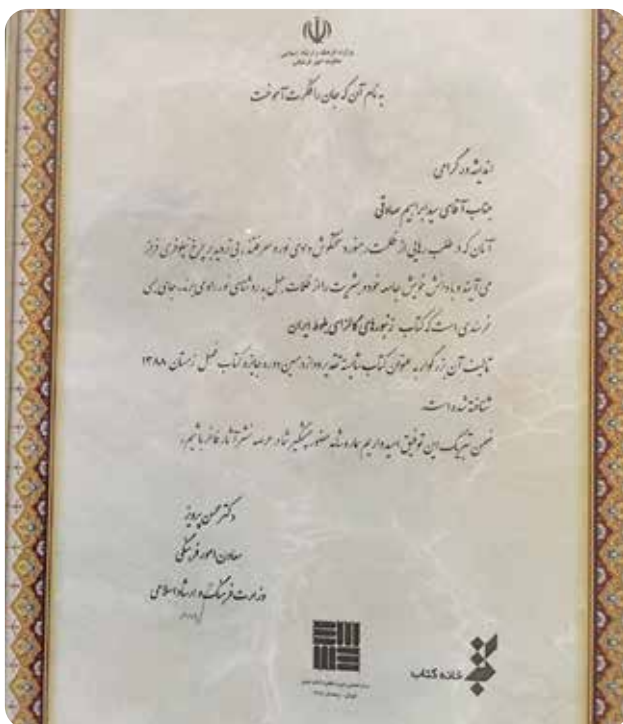 وزارت فرهنگ و ارشاد اسلامی
معاونت امور فرهنگی
به نام آن که جان را فکرت آموخت
اندیشه‌ور گرامی
جناب آقای سید ابراهیم صادقی
آنان که در طلب رهایی از ظلمت و سوی نور و معرفتند، بی تردید بر چرخ نیلوفری فراز
می‌آیند و با دانش خویش جامعه خود و بشریت را از ظلمات جهل به روشنای نور راهی می‌برند، جای بسی
خرسندی است که کتاب زنبورهای گالزای بلوط ایران
تالیف آن بزرگوار به عنوان کتاب شایسته تقدیر دوازدهمین دوره جایزه کتاب فصل زمستان ۱۳۸۸
شناخته شده است.
ضمن تبریک این توفیق امیدواریم همواره شاهد حضور چشمگیر شما در عرصه نشر آثار فاخر باشیم.
دکتر محسن پرویز
معاون امور فرهنگی
وزارت فرهنگ و ارشاد اسلامی
خانه کتاب